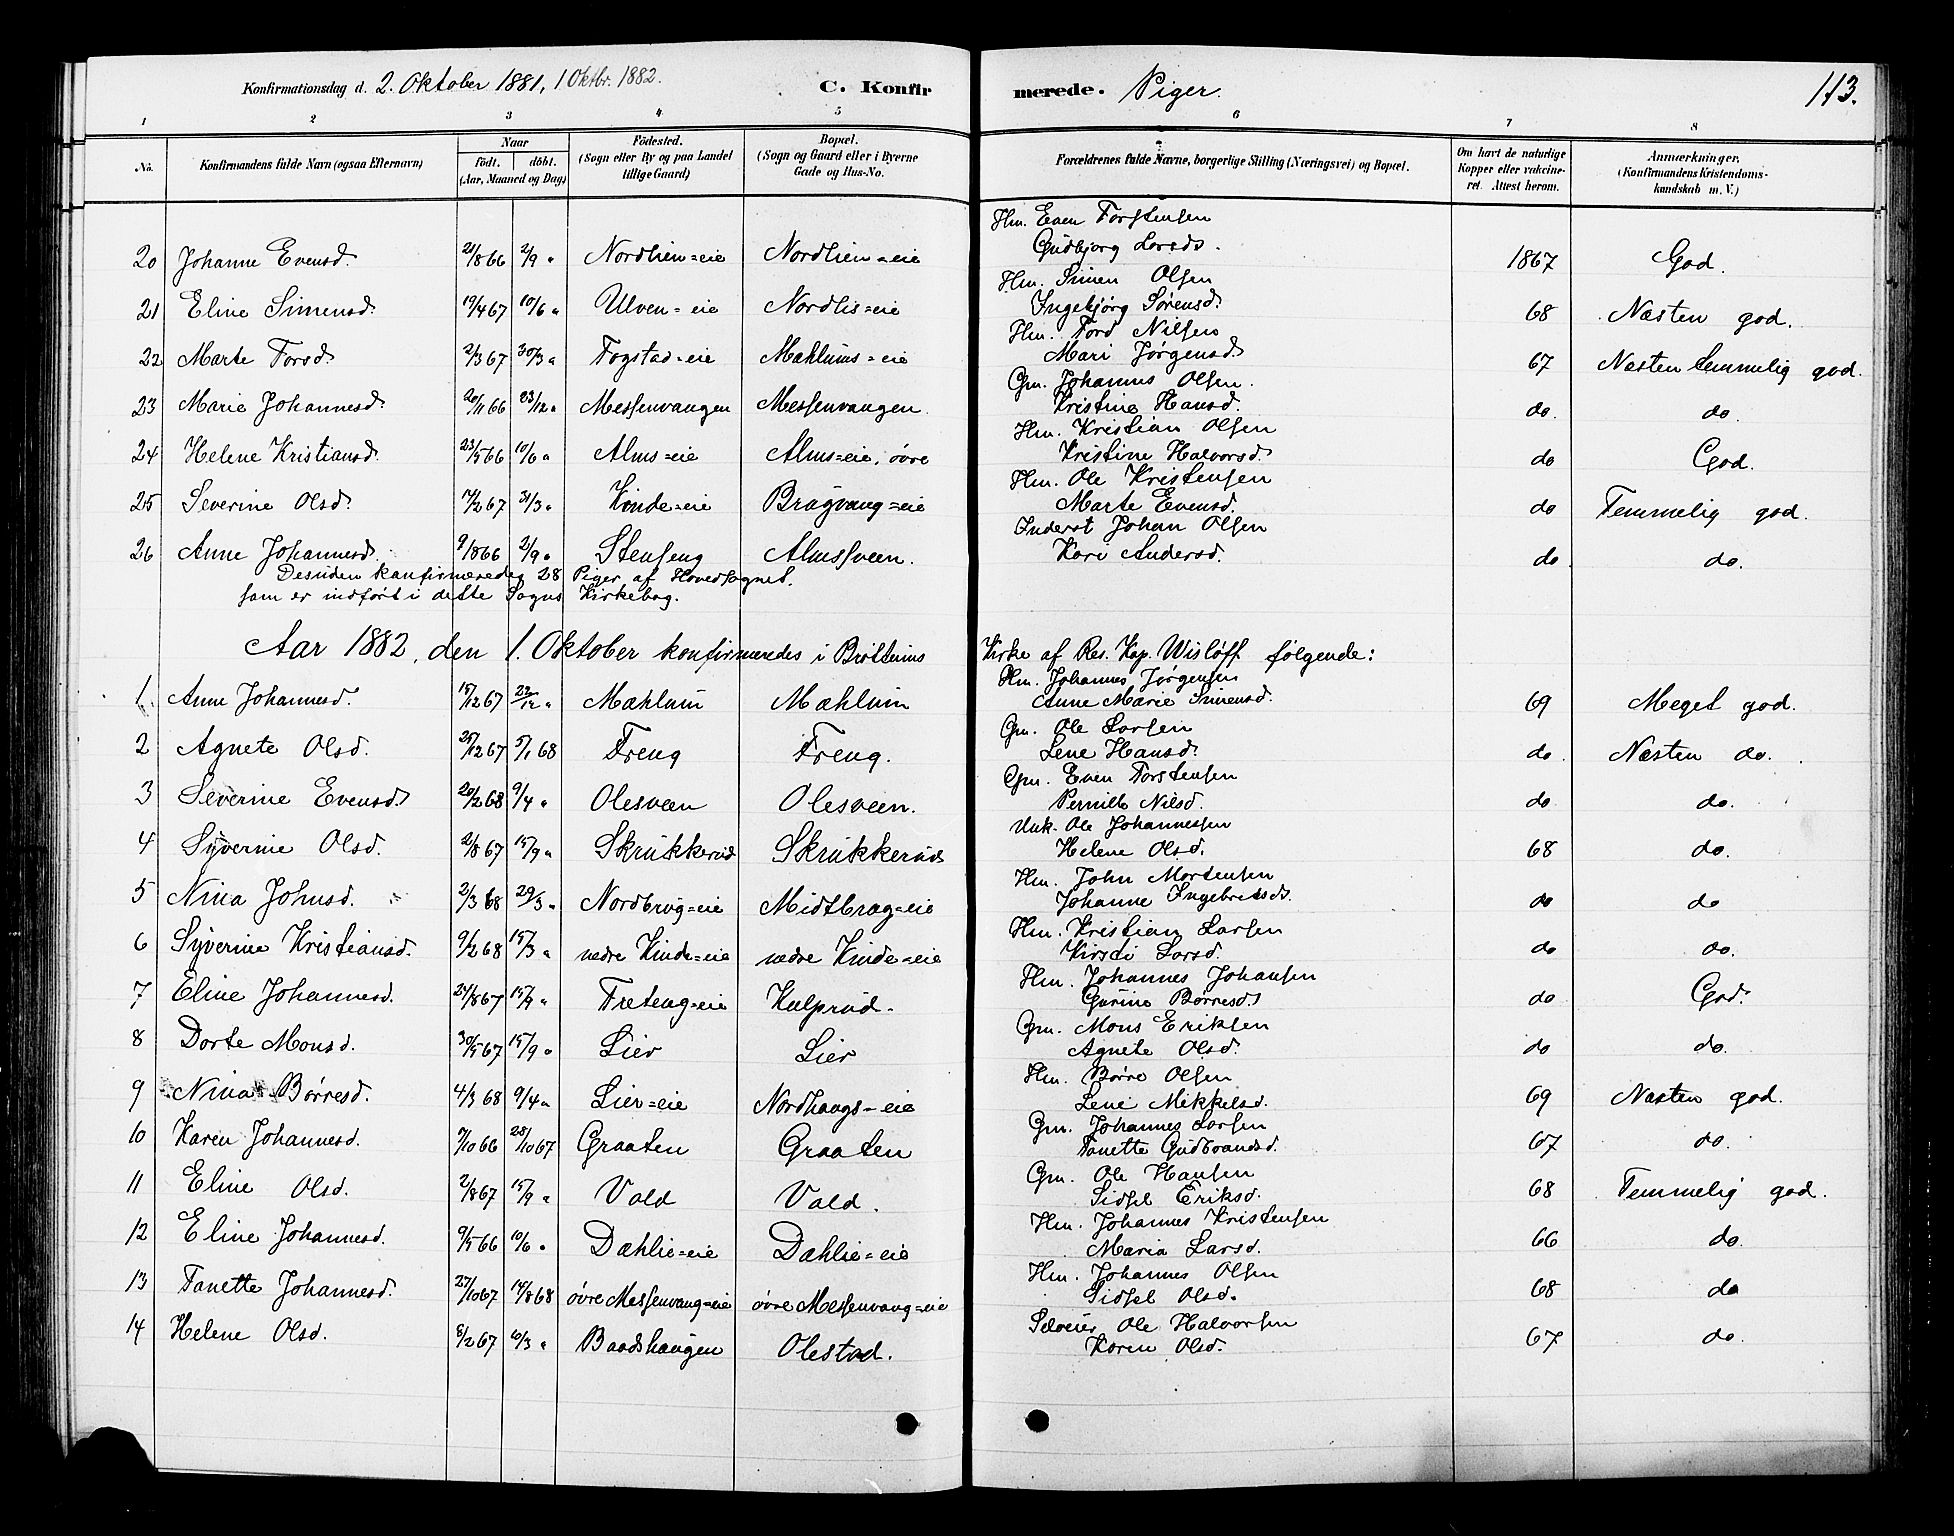 Konfirmationsdag d. 2. Oktober 1881, 1 Oktbr. 1882. C. Konfirmerede. Piger. 113.
1 2 3 4 5 6 7 8
No. Konfirmandens fulde Navn (ogsaa Efternavn) Naar født. døbt. (Aar, Maaned og Dag) Fødested. (Sogn eller By og paa Landet tillige Gaard) Bopæl. (Sogn og Gaard eller i Byerne Gade og Hus-No. Forældrenes fulde Navne, borgerlige Stilling (Næringsvei) og Bopæl. Om havt de naturlige Kopper eller vakcineret. Attest herom. Anmærkninger. (Konfirmandens Kristendomskundskab m. V.)
20 Johanne Evensd. 21/8 66 2/9 " Nordlien=eie Nordlien=eie Hm. Even Torstensen Gudbjørg Larsd. 1867 God.
21 Eline Simensd. 19/4 67 10/6 " Ulven=eie Nordlis=eie Hm. Simen Olsen Ingebjørg Sørensd. 68 Næsten god.
22 Marte Torsd. 2/3 67 30/3 " Fogstad=eie Mæhlums=eie Hm. Tord Nilsen Mari Jørgensd. 67 Næsten temmelig god.
23 Marie Johannesd. 20/11 66 23/12 " Messenvangen Messenvangen. Gm. Johannes Olsen. Kristine Hansd. do. do.
24 Helene Kristiansd. 23/5 66 10/6 " Alms=eie Alms=eie, øvre Hm. Kristian Olsen Kristine Halvorsd. do God.
25 Severine Olsd. 17/2 67 31/3 " Kinde=eie Bragvang=eie Hm. Ole Kristensen Marte Evensd. do Temmelig god.
26 Anne Johannesd. 9/8 66 2/9 " Stenseng Almssveen. Inderst Johan Olsen Kari Andersd. do. do.
Desuden konfirmeredes 28 Piger af Hovedsognet.
som er indført i dette Sogns Kirkebog.
Aar 1882, den 1. Oktober konfirmeredes i Brøttums Kirke af Res. Kap. Wisløff følgende:
1. Anne Johannesd. 15/12 67 22/12 " Mæhlum Mæhlum Hm. Johannes Jørgensen Anne Marie Simensd. 69 Meget god.
2 Agnete Olsd. 25/12 67 5/1 68 Freng Freng. Gm. Ole Larsen Lene Hansd. do. Næsten do.
3 Severine Evensd. 20/2 68 9/4 " Olesveen Olesveen. Gm. Even Torstensen Pernille Nilsd. do do.
4 Syverine Olsd. 2/8 67 15/9 " Skrukkerud Skrukkerud Unk. Ole Johannessen Helene Olsd. 68 do.
5 Nina Johnsd. 2/3 68 29/3 " Nordbrag=eie Midtbrag=eie Hm. John Mortensen Johanne Ingebretsd. do do
6 Syverine Kristiansd. 9/2 68 15/3 " nedre Kinde=eie nedre Kinde=eie Hm. Kristian Larsen Kirsti Larsd. do do.
7 Eline Johannesd. 24/8 67 15/9 " Freteng=eie Kulprud. Hm. Johannes Johansen Gurine Børresd. do God.
8 Dorte Monsd. 30/5 67 15/9 " Lier Lier Gm. Mons Eriksen Agnete Olsd. do do.
9 Nina Børresd. 4/3 68 9/4 " Lier=eie Nordhaugs=eie Hm. Børre Olsen Lene Mikkelsd. 69 Næsten god.
10 Karen Johannesd. 7/10 66 28/10 67 Graaten Graaten Gm. Johannes Larsen Tanette Gudbrandsd. 67 do.
11 Eline Olsd. 2/8 67 15/9 " Vold Vold. Gm. Ole Hansen Sidsel Eriksd. 68 Temmelig god.
12 Eline Johannesd. 9/5 66 10/6 " Dæhlie=eie Dæhlie=eie Hm. Johannes Kristensen Maria Larsd. 66 do.
13 Tanette Johannesd. 27/10 67 14/8 68 øvre Messenvang=eie øvre Messenvang=eie Hm. Johannes Olsen Sidsel Olsd. 68 do
14 Helene Olsd. 8/2 67 10/3 " Baadshaugen Olestad. Selveier Ole Halvorsen Karen Olsd. 67 do.